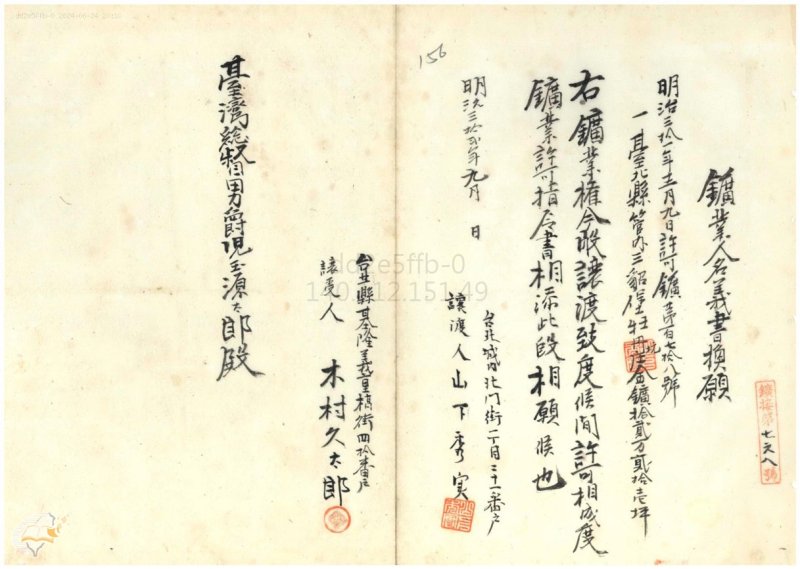 鑛業人名義書換願
明治三拾一年十二月九日許可鑛第百七拾八號
一臺北縣管外三貂堡牡丹坑金鑛拾貳万貳拾壱坪
右鑛業權今般讓渡致度候間許可相成度
鑛業許可指令書相添此段相願候也
明治三拾貳年九月 日
台北城内北門街一丁目三十一番戸
讓渡人山下秀実
台北縣基隆義重橋街四拾番戸
讓受人 木村久太郎
臺灣總督男爵児玉源太郎殿
156